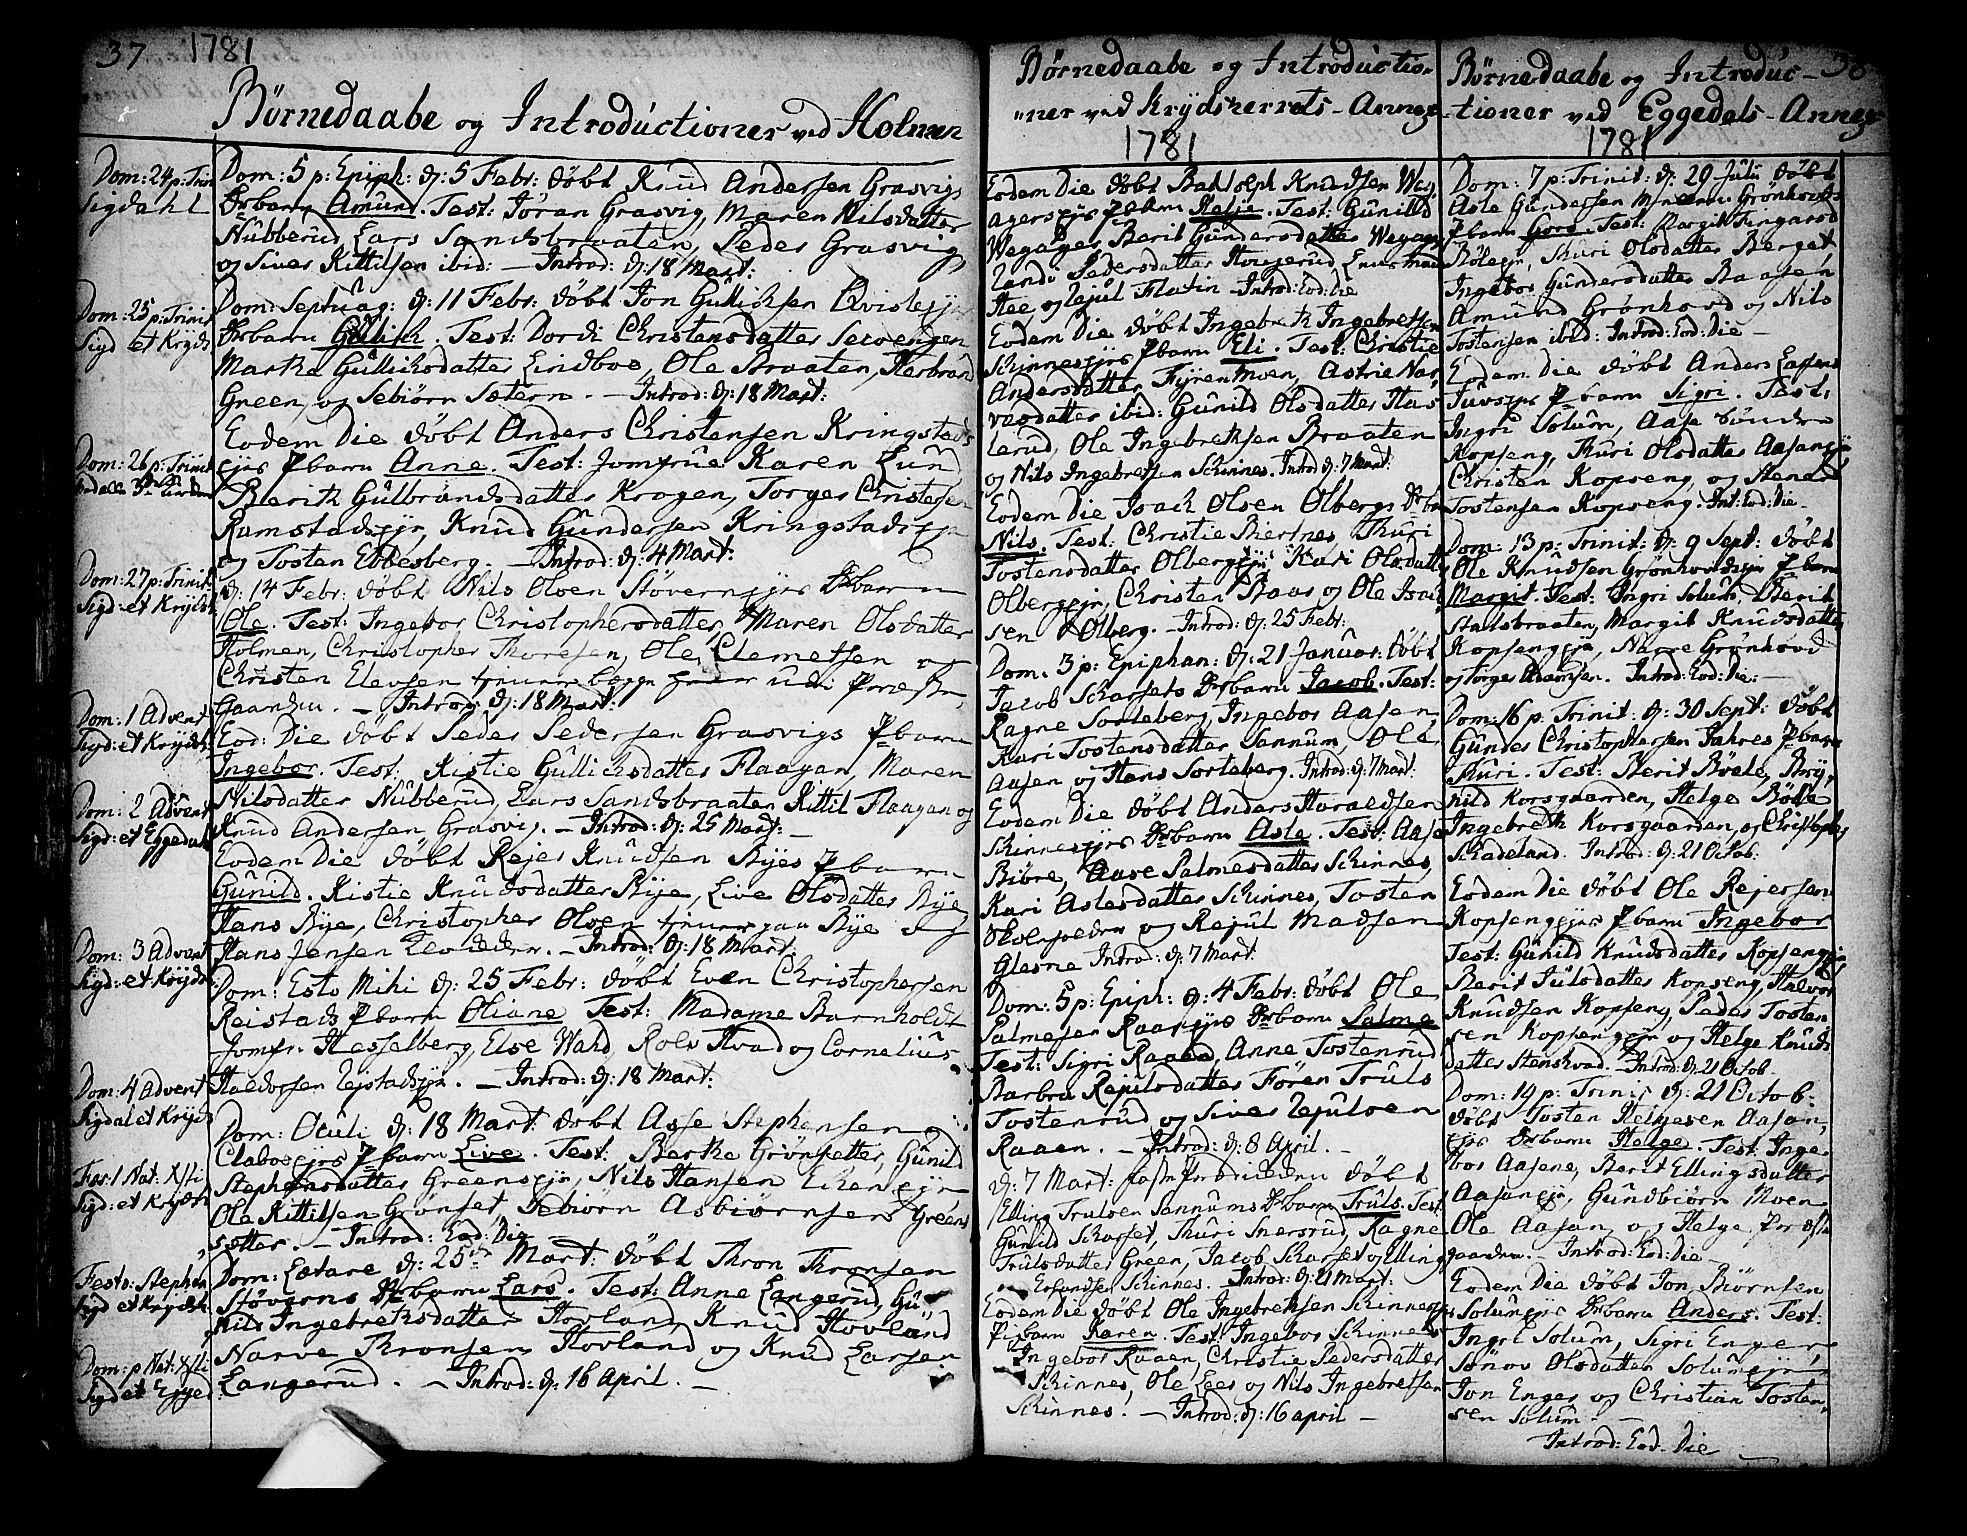 37 1781
Børnedaabe og Introductioner ved Holmen
Dom: 24 p: Trin
Sigdahl
Dom: 25 p: Trinit
Sigd et Kryds
Dom: 26 p: Trinit
Dom: 27 p: Trinit
Sigd: et Kryds
Dom: 1 Advent
Sigd: et Kryds
Dom: 2 Advent
Sigd: et Eggedal
Dom: 3 Advent
Sigd: et Kryds
Dom: 4 Advent
Sigdal et Kryds
Fer: 1 Nat: Xsti
Sigd: et Kryds
Festo: Stephan
Sigd et Kryds
Dom: p Nat: Xsti
Sigd et Egged:
Dom: 5 p: Epiph: d: 5 Febr: døbt Knud Andersen Grasvigs
Drbarn Amund. Test: Jøran Grasvig, Maren Nilsdatter
Nubberud Lars Sandsbraaten, Peder Grasvig
og Siver Kittilsen ibid: – Introd: d: 18 Mart:
Dom: Septuag: d: 11 Febr: døbt Jon Gullichsen
Drbarn Gullich. Test: Dordi Christensdatter
Marthe Gullichsdatter Lindboe, Ole Braaten, Herbrand
Green, og Sebiørn Sætern. – Introd: d: 18 Mart:
Eodem Die døbt Anders Christensen Kringstads
ejes Pbarn Anne. Test: Jomfrue Karen Lund
Berith Gulbrandsdatter Krogen, Torger Christensen
Ramstadsejer, Knud Gundersen Kringstadseje
og Tosten Ebbesberg. – Introd: d: 4 Mart:
d: 14 Febr: døbt Nils Olsen Støvernejes Drbarn
Ole. Test: Ingebor Christophersdatter, Maren Olsdatter
Holmen, Christopher Thoresen, Ole Clemetsen og
Christen Elevsen tienner begge udi Præste
Gaarden. – Introd: d: 18 Mart:
Eod: Die døbt Peder Pedersen Grasvigs Pbarn
Ingebor. Test: Kistie Gullichsdatter Flaagan, Maren
Nilsdatter Nubberud, Lars Sandsbraaten Kittil Flaagan og
Knud Andersen Grasvig. – Introd: d: 25 Mart: –
Eodem Die døbt Rejer Knudsen Byes Pbarn
Gunild. Kistie Knudsdatter Bye, Live Olsdatter Bye
Hans Bye, Christopher Olsen tienner paa Bye og
Hans Jensen – Introd: d: 18 Mart:
Dom: Esto Mihi d: 25 Febr: døbt Even Christophersen
Reistads Pbarn Oliane Test: Madame Barnholdt
Jomfr. Hesselberg, Else Wahd, Rols Hvad og Cornelius
Haldorsen – Introd: d: 18 Mart:
Dom: Oculi d: 18 Mart: døbt Asse Stephensen
Pbarn Live. Test: Berthe Grønsetter, Gunild
Stephensdatter Greensejer, Nils Hansen
Ole Kittilsen Grønset, Sebiørn Asbiørnsen Greens
sætter. – Introd: Eod: Die
Dom: Lætare d: 25de Mart: døbt Thron Thronsen
Støverns Drbarn Lars. Test: Anne Langerud, Gu
nild Ingebrethsdatter Hovland, Knud Hovland
Narve Thronsen Hovland og Knud Larsen
Langerud. – Introd: d: 16 April. –
Børnedaabe og Introductio-
-ner ved Krydsherrets-Annex
1781
Eodem Die døbt Knudsen
Pbarn Helje. Test: Gunild
Berit Gundersdatter
Randi Pedersdatter
Hee og Rejul Flatin – Introd: Eod: Die
Eodem Die døbt Ingebreth Ingebretsen
Skinnesejes Pbarn Eli. Test: Christie
Andersdatter Astrie Nar-
vesdatter ibid: Gunild Olsdatter Has
lerud, Ole Ingebrethsen Braaten
og Nils Ingebretsen Skinnes. Introd d: 7 Mart:
Eodem Die Isach Olsen Olbergs Drba
Nils. Test: Christie Thuri
Tostensdatter Olbergeje Kari Olsdatter
Olbergeje, Christen Braas og Ole Isac
sen Olberg. – Introd: d: 25 Febr:
Dom: 3 p: Epiphan: d: 21 Januar: døbt
Jacob Skarsets Drbarn Jacob. Test:
Ragne Sorteberg, Ingebor Aasen,
Kari Tostensdatter Sannum, Ole
Aasen og Hans Sorteberg. Introd: d: 7 Mart:
Eodem Die døbt Anders Haraldsen
Skinnesejes Drbarn Asle. Test: Aase
Bibre, Aase Palmesdatter Skinnes,
Kari Aslesdatter Skinnes, Tosten
og Rejul Madsen
Glesne Introd: d: 7 Mart:
Dom: 5 p: Epiph: d: 4 Febr: døbt Ole
Palmesen Raaenejes Drbarn Palme
Test: Sigri Raaen, Anne Tostenrud
Barbra Rejulsdatter Føren Truls
Tostenrud og Siver Rejulsen
Raaen. – Introd: d: 8 April. –
d: 7 Mart: døbt
Elling Trulsen Sannums Drbarn Truls. Test:
Gunild Skarset, Thuri Snersrud, Ragne
Trulsdatter Green, Jacob Skarset og Elling
Erlandsen Skinnes. – Introd: d: 21 Mart:
Eodem Die døbt Ole Ingebrethsen Skinnes
Pigbarn Karen. Test: Ingebor Skinnes
Ingebor Raaen, Christie Pedersdatter
Skinnes, Ole Lees og Nils Ingebretsen
Skinnes. – Introd: d: 16 april –
Børnedaabe og Introduc- 38
-tioner ved Eggedals-Annex
1781
Dom: 7 p: Trinit: d: 29 Juli døbt
Asle Gundersen Grønhovds
Pbarn Goro. Test: Margit
Thuri Olsdatter Berget
Ingebor Gundersdatter
Amund Grønhovd og Nils
Tostensen ibid: Introd: Eod: Die –
Eodem Die døbt Anders Larsens
Pbarn Sigri. Test:
Ingri Solum, Aase Sønden
Kopseng, Thuri Olsdatter Aasaneje
Christen Kopseng, og Stener
Tostensen Kopseng. Int: Eod: Die –
Dom: 13 p: Trinit: d: 9 Sept: døbt
Ole Knudsen Grønhovdseje Pbarn
Margit. Test: Ingri Solum, Berit
Margit Knudsdatter
Kopsengeje, Narve Grønhovd
og Torger Adamsen. Introd: Eod: Die: –
Dom: 16 p: Trinit: d: 30 Sept: døbt
Gunder Christophersen Jahres Pbarn
Thuri. Test: Berit Bøele, Bry-
nild Korsgaarden, Helge Bøele
Ingebreth Korsgaarden, og Christopher
Skadeland. Introd: d: 21 Octob:
Eodem Die døbt Ole Rejersen
Kopsengejes Pbarn Ingebor
Test: Gunild Knudsdatter Kopsengeje
Berit Julsdatter Kopseng, Halvor
Knudsen Kopseng, Peder Tosten
sen Kopsengeje og Helge Knuds
datter Introd: d: 21 Octob:
Dom: 19 p: Trinit: d: 21 Octob:
døbt Tosten Helgesen Aasan-
ejes Drbarn Helge. Test: Inge-
bor Aasene, Berit Ellingsdatter
Aasaneje, Gundbiørn Moen
Ole Aasan, og Helge Præste
gaarden. – Introd: Eod: Die –
Eodem Die døbt Jon Biørnsen
Solumejes Drbarn Anders. Test:
Ingri Solum, Sigri Enger,
Sønov Olsdatter Solumeje,
Jon Enger og Christian Tosten-
sen Solum. –
Introd: Eod: Die